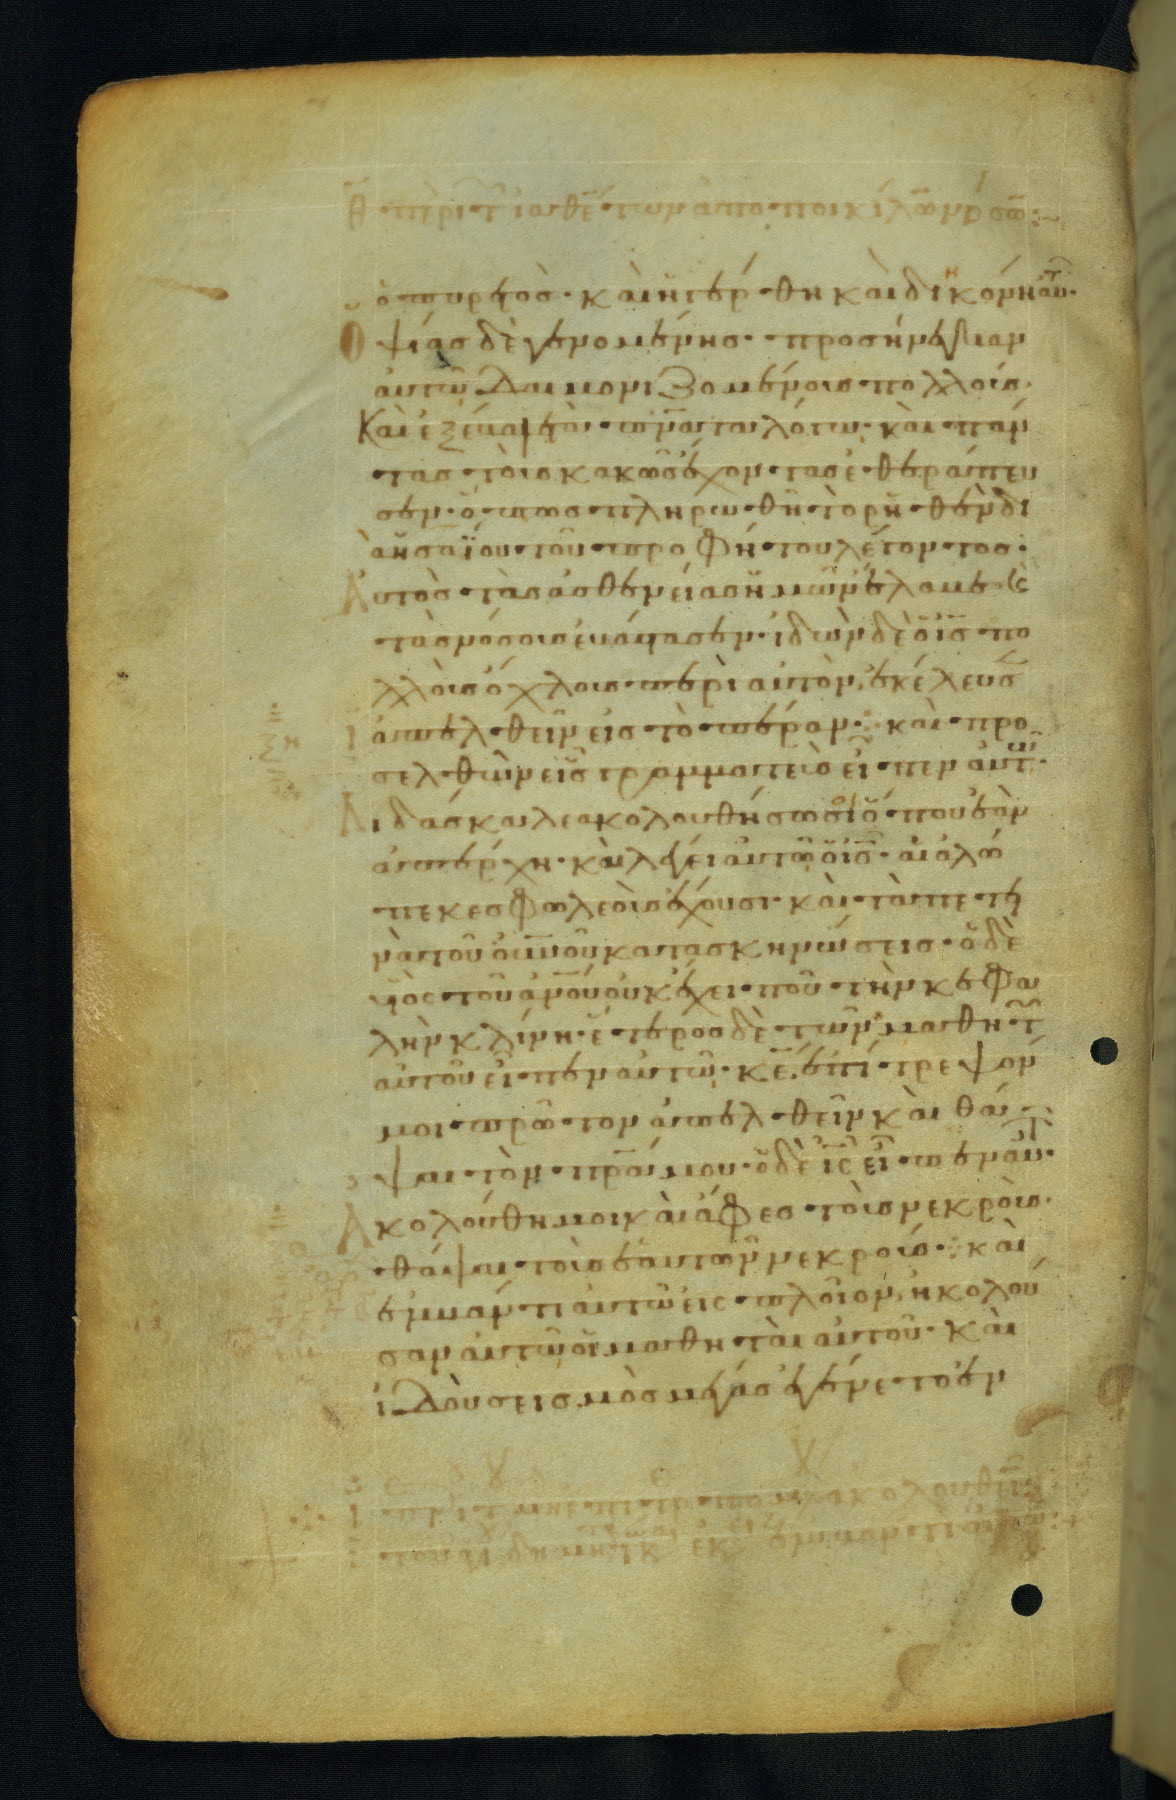 θ περι τ ιαθε των απο ποικίλων νόσω
ὁ πυρετὸσ· καὶ ἠγέρθη καὶ διηκόνει αυτ·
Ὀψίασ δὲ γενομένησ· προσήνεγκαν
αυτῶ δαιμονιζομένουσ πολλοίσ·
Καὶ ἐξέβαλεν τὰ πνατα λόγω· καὶ πάν
τασ τοὺσ κακῶσ ἔχοντασ ἐθεράπευ
σεν· ὅπωσ πληρωθῆ τὸ ρηθὲν δι
ὰ ησαΐου τοῦ προφήτου λέγοντοσ·
Αὐτὸσ τὰσ ἀσθενείασ ἡμῶν ἔλαβε (καὶ)
τὰσ νόσουσ ἐβάστασεν· ἰδὼν δὲ ὁ ισ πο
λλοὺσ ὄχλουσ περὶ αυτὸν, ἐκέλευσ
ἀπελθεῖν εἰσ τὸ πέραν· καὶ προ
σελθὼν εἷσ γραμματεὺσ εἶπεν αὐτ·
Διδάσκαλε ακολουθήσω σοι ὅπου ἐὰν
ἀπέρχη· καὶ λέγει αὐτῶ ὁ ισ· αἱ αλώ
πεκεσ φωλεοὺσ ἔχουσι· καὶ τὰ πετει
νὰ τοῦ οὐνοῦ κατασκηνώσεισ· ὁ δὲ
υἱὸσ τοῦ ανού οὐκ ἔχει ποῦ τὴν κεφα
λὴν κλίνη· ἕτεροσ δὲ τῶν μαθητ
αυτοῦ εἶπεν αυτῶ· κε, ἐπίτρεψόν
μοι πρῶτον ἀπελθεῖν καὶ θά
ψαι τὸν πρα μου· ὁ δὲ ισ εἶπεν αὐτ·
Ἀκολούθη μοι καὶ ἄφεσ τοὺσ νεκροὺσ·
θάψαι τοὺσ ἑαυτῶν νεκρούσ· καὶ
ἐμβάντι αυτῶ εἰσ πλοῖον, ἠκολού
σαν αυτῶ οἱ μαθηταὶ αυτοῦ· καὶ
ἰδοὺ σεισμὸσ μέγασ ἐγένετο ἐν
ῑ περι τ μη επιτρεπομ ακολουθειν